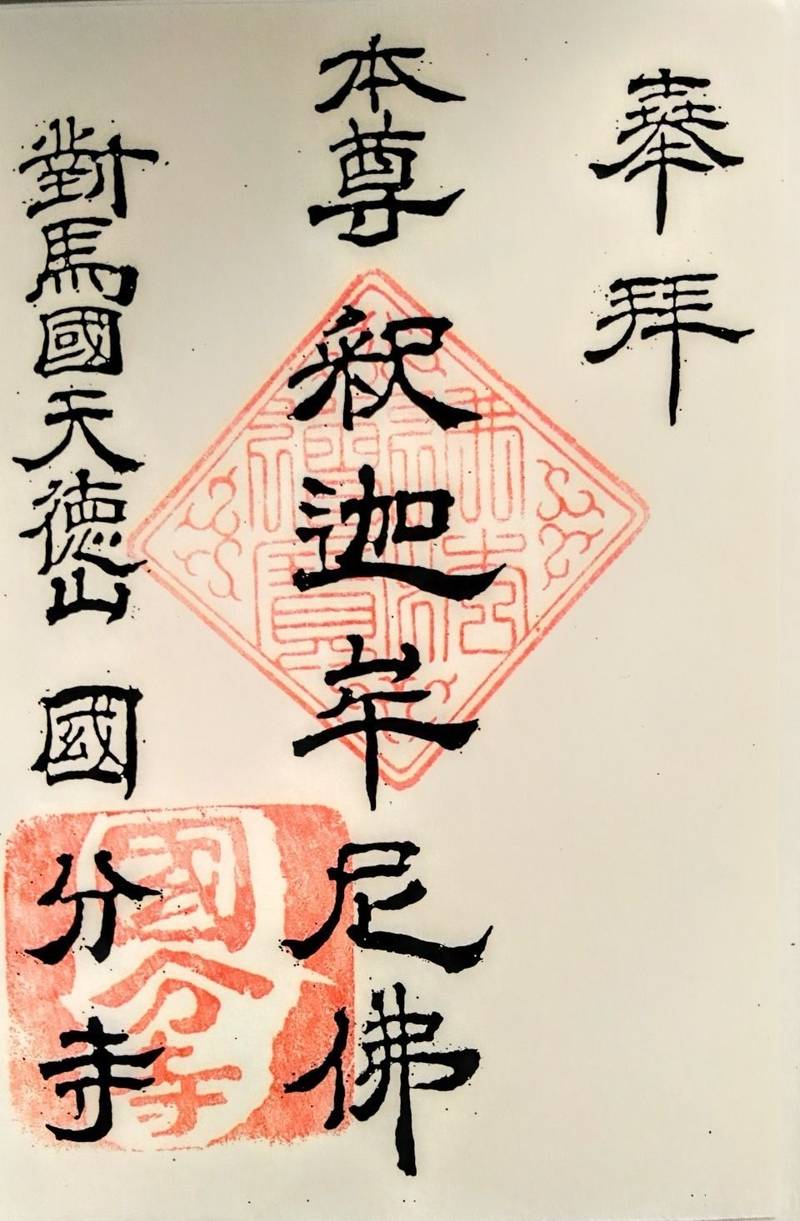 奉拝
本尊 釈迦牟尼佛
對馬國天徳山 國分寺
佛法僧寶
國分寺